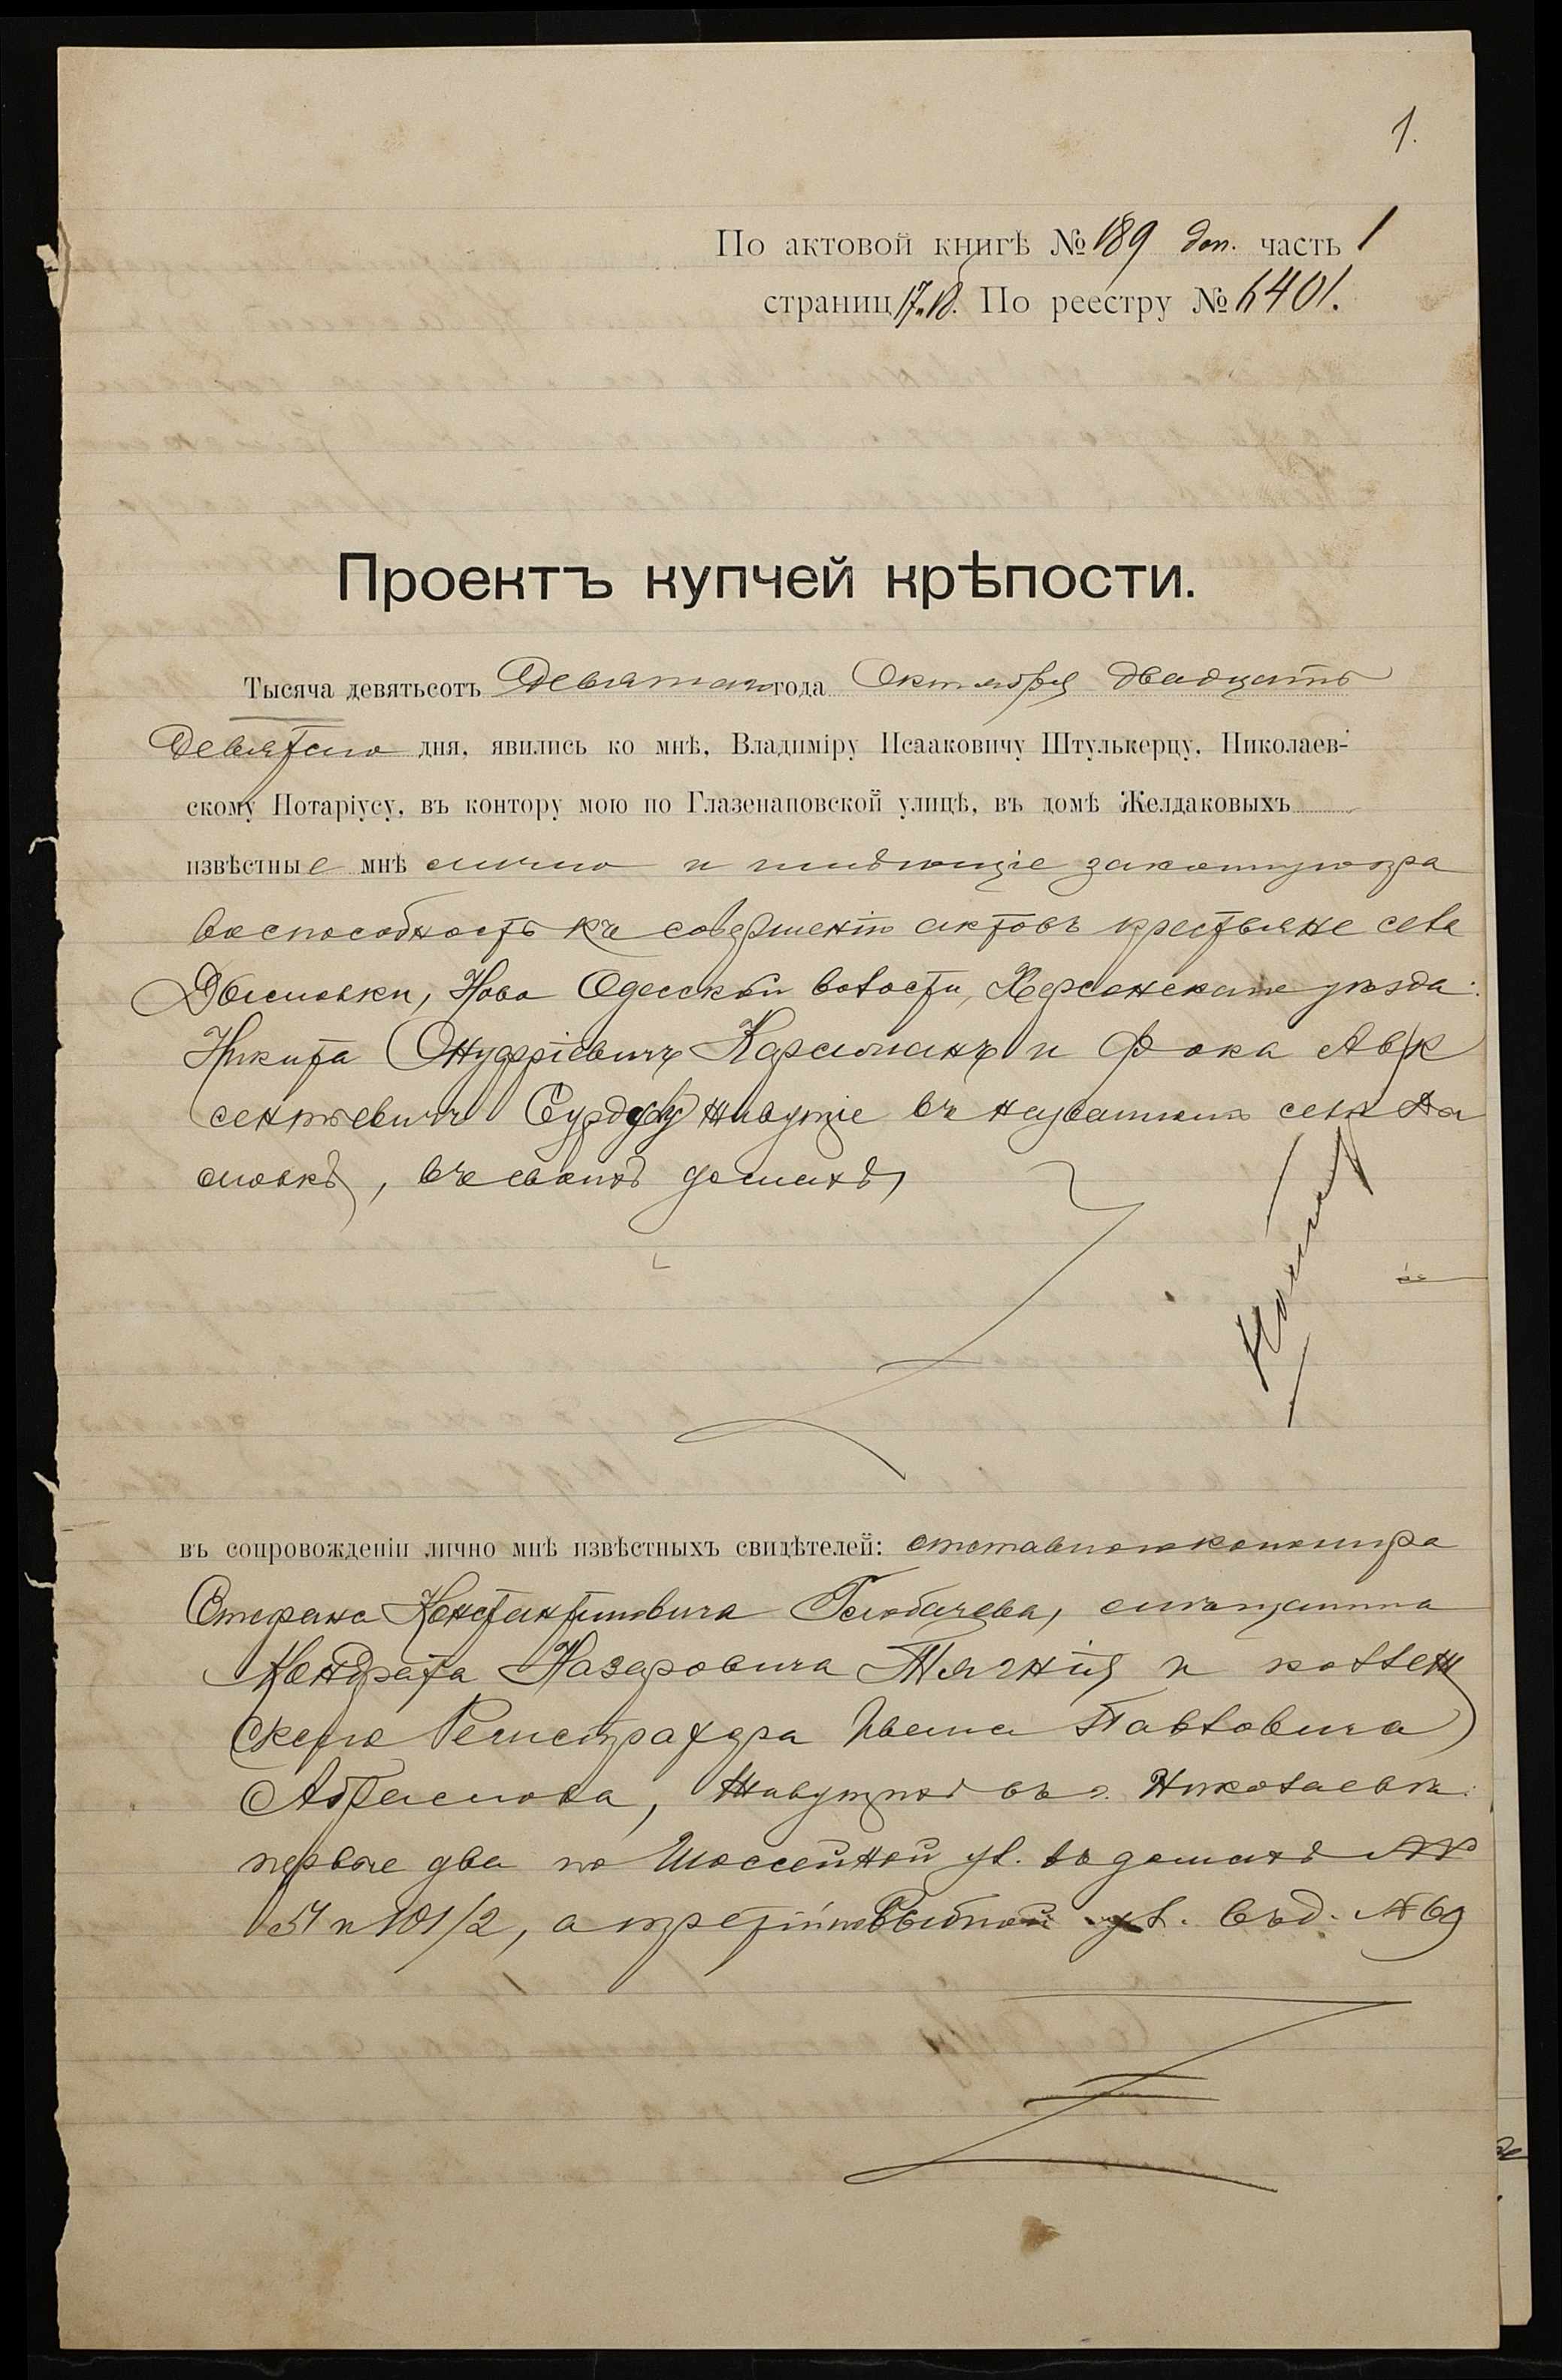 1.
По актовой книгѣ № 189 доп. часть 1
страниц 17-18. По реестру № 6401.
Проектъ купчей крѣпости.
Тысяча девятьсотъ девятаго года Октября двадцать
девятаго дня, явились ко мнѣ, Владиміру Исааковичу Штулькерцу, Николаев-
скому Нотаріусу, въ контору мою по Глазенаповской улицѣ, въ домѣ Желдаковыхъ
извѣстные мнѣ лично и имѣющіе законную пра
воспособность къ совершенію актовъ крестьяне села
Дымовки, Ново Одесской волости, Херсонскаго уѣзда:
Никита Онуфріевичъ Караманъ и Фока Авк
сентьевичъ Сурдуъ живущіе въ названномъ селѣ Ды
мовкѣ, въ своихъ домахъ,
въ сопровожденіи лично мнѣ извѣстныхъ свидѣтелей: отставного
Стефана Константиновича Голобачева, мѣщанина
Кондрата Назаровича Тягнія и коллеж
скаго Регистратора Ивана Павловича
Абрамова, живущихъ въ г. Николаевѣ:
первые два по Шоссейной ул. въ домахъ №№
54 и 101/2, а третій по ул. въ д. № 69